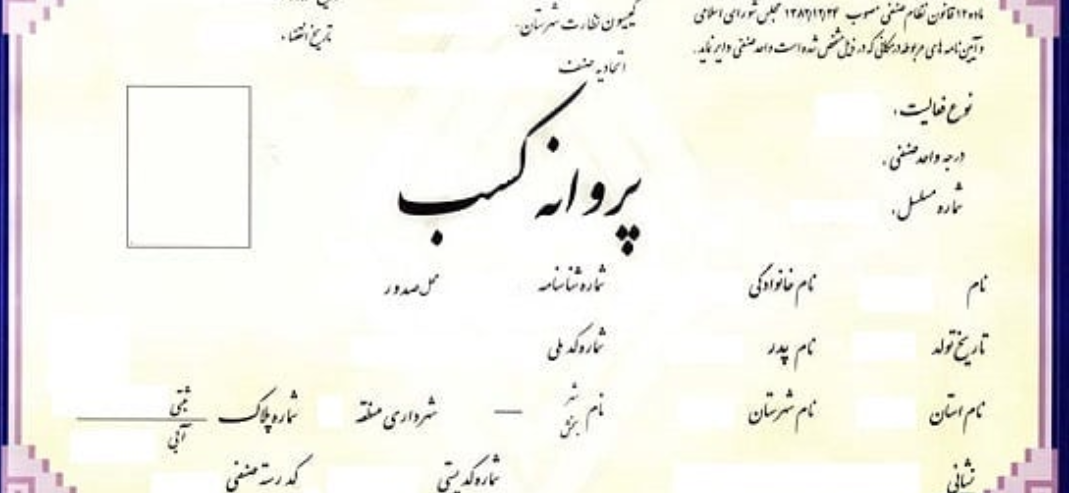 ماده ۱۲ قانون نظام صنفی مصوب ۱۳۸۲/۱۲/۲۴ مجلس شورای اسلامی
و آیین نامه های مربوطه در مکانی که در ذیل مشخص شده است واحد صنفی دایر نماید.
کمیسیون نظارت شهرستان.
تاریخ انقضاء.
اتحادیه صنف
نوع فعالیت.
پروانه کسب
درجه واحد صنفی.
شماره مسلسل.
نام نام خانوادگی شماره شناسنامه محل صدور
تاریخ تولد نام پدر شماره کد ملی
نام استان نام شهرستان نام شهر بخش — شهرداری منطقه شماره پلاک ثبتی آبی
نشانی شماره کد پستی کد رسته صنفی